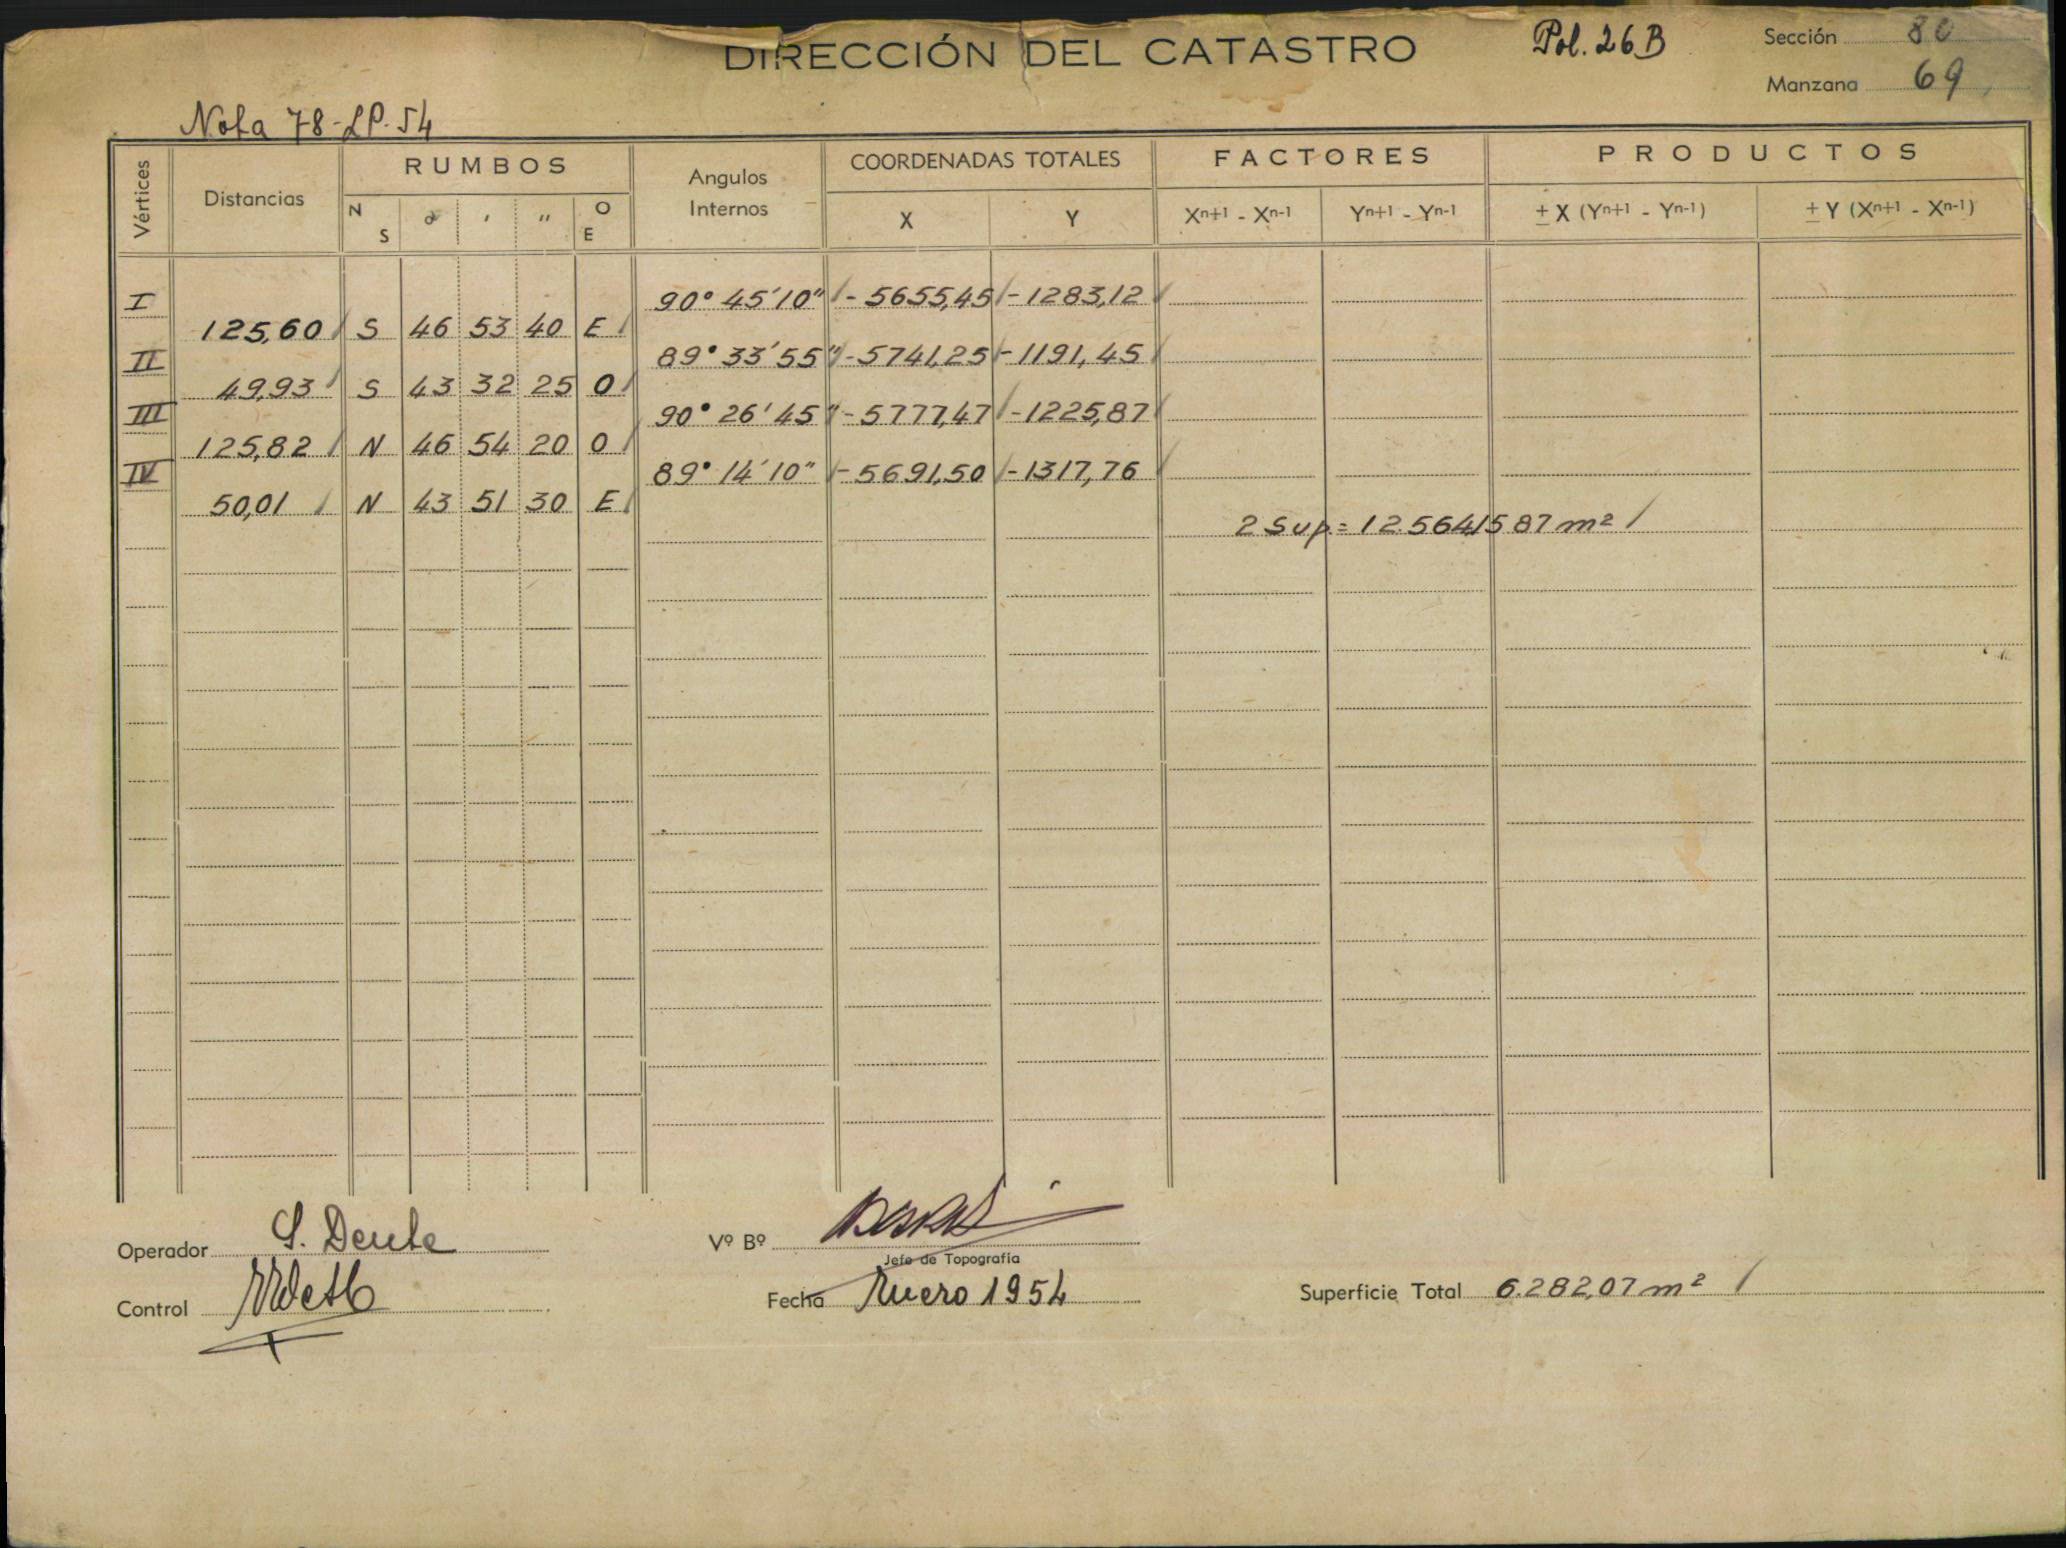 DIRECCIÓN DEL CATASTRO
Pol. 26 B
Sección 80
Manzana 69
Nota 78-LP-54
Vértices
Distancias
RUMBOS
N S ° ' " O E
Angulos Internos
COORDENADAS TOTALES
X Y
FACTORES
Xn+1 - Xn-1 Yn+1 - Yn-1
PRODUCTOS
± X (Yn+1 - Yn-1) ± Y (Xn+1 - Xn-1)
I 90° 45' 10" -5655,45 -1283,12
125,60 S 46 53 40 E
II 89° 33' 55" -5741,25 -1191,45
49,93 S 43 32 25 O
III 90° 26' 45" -5777,47 -1225,87
125,82 N 46 54 20 O
IV 89° 14' 10" -5691,50 -1317,76
50,01 N 43 51 30 E
2 Sup. = 12.564,1587 m²
Operador S. Dente
Vº Bº
Jefe de Topografía
Control
Fecha Enero 1954
Superficie Total 6.282,07 m²